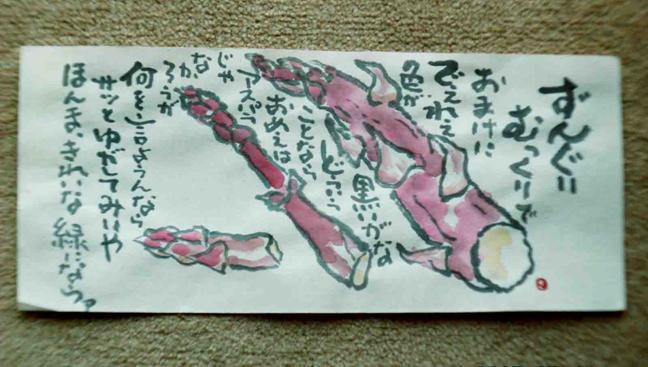 ずんぐり
むっくりで
おまけに
でえれえ
色が
黒いがな
どういう
ことなら
おめえは
アスパラ
じゃ
なかろうが
何を言ようんなら
サッとゆがしてみいや
ほんまきれいな緑にならァ